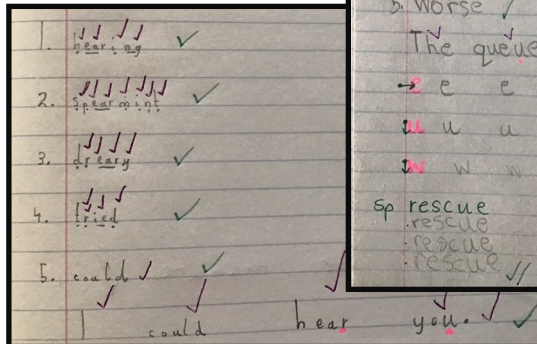 1. hearing
2. spearmint
3. dreary
4. tried
5. could
I could hear you.
5. worse
The queue
e e e
u u u
w w w
sp rescue
rescue
rescue
rescue